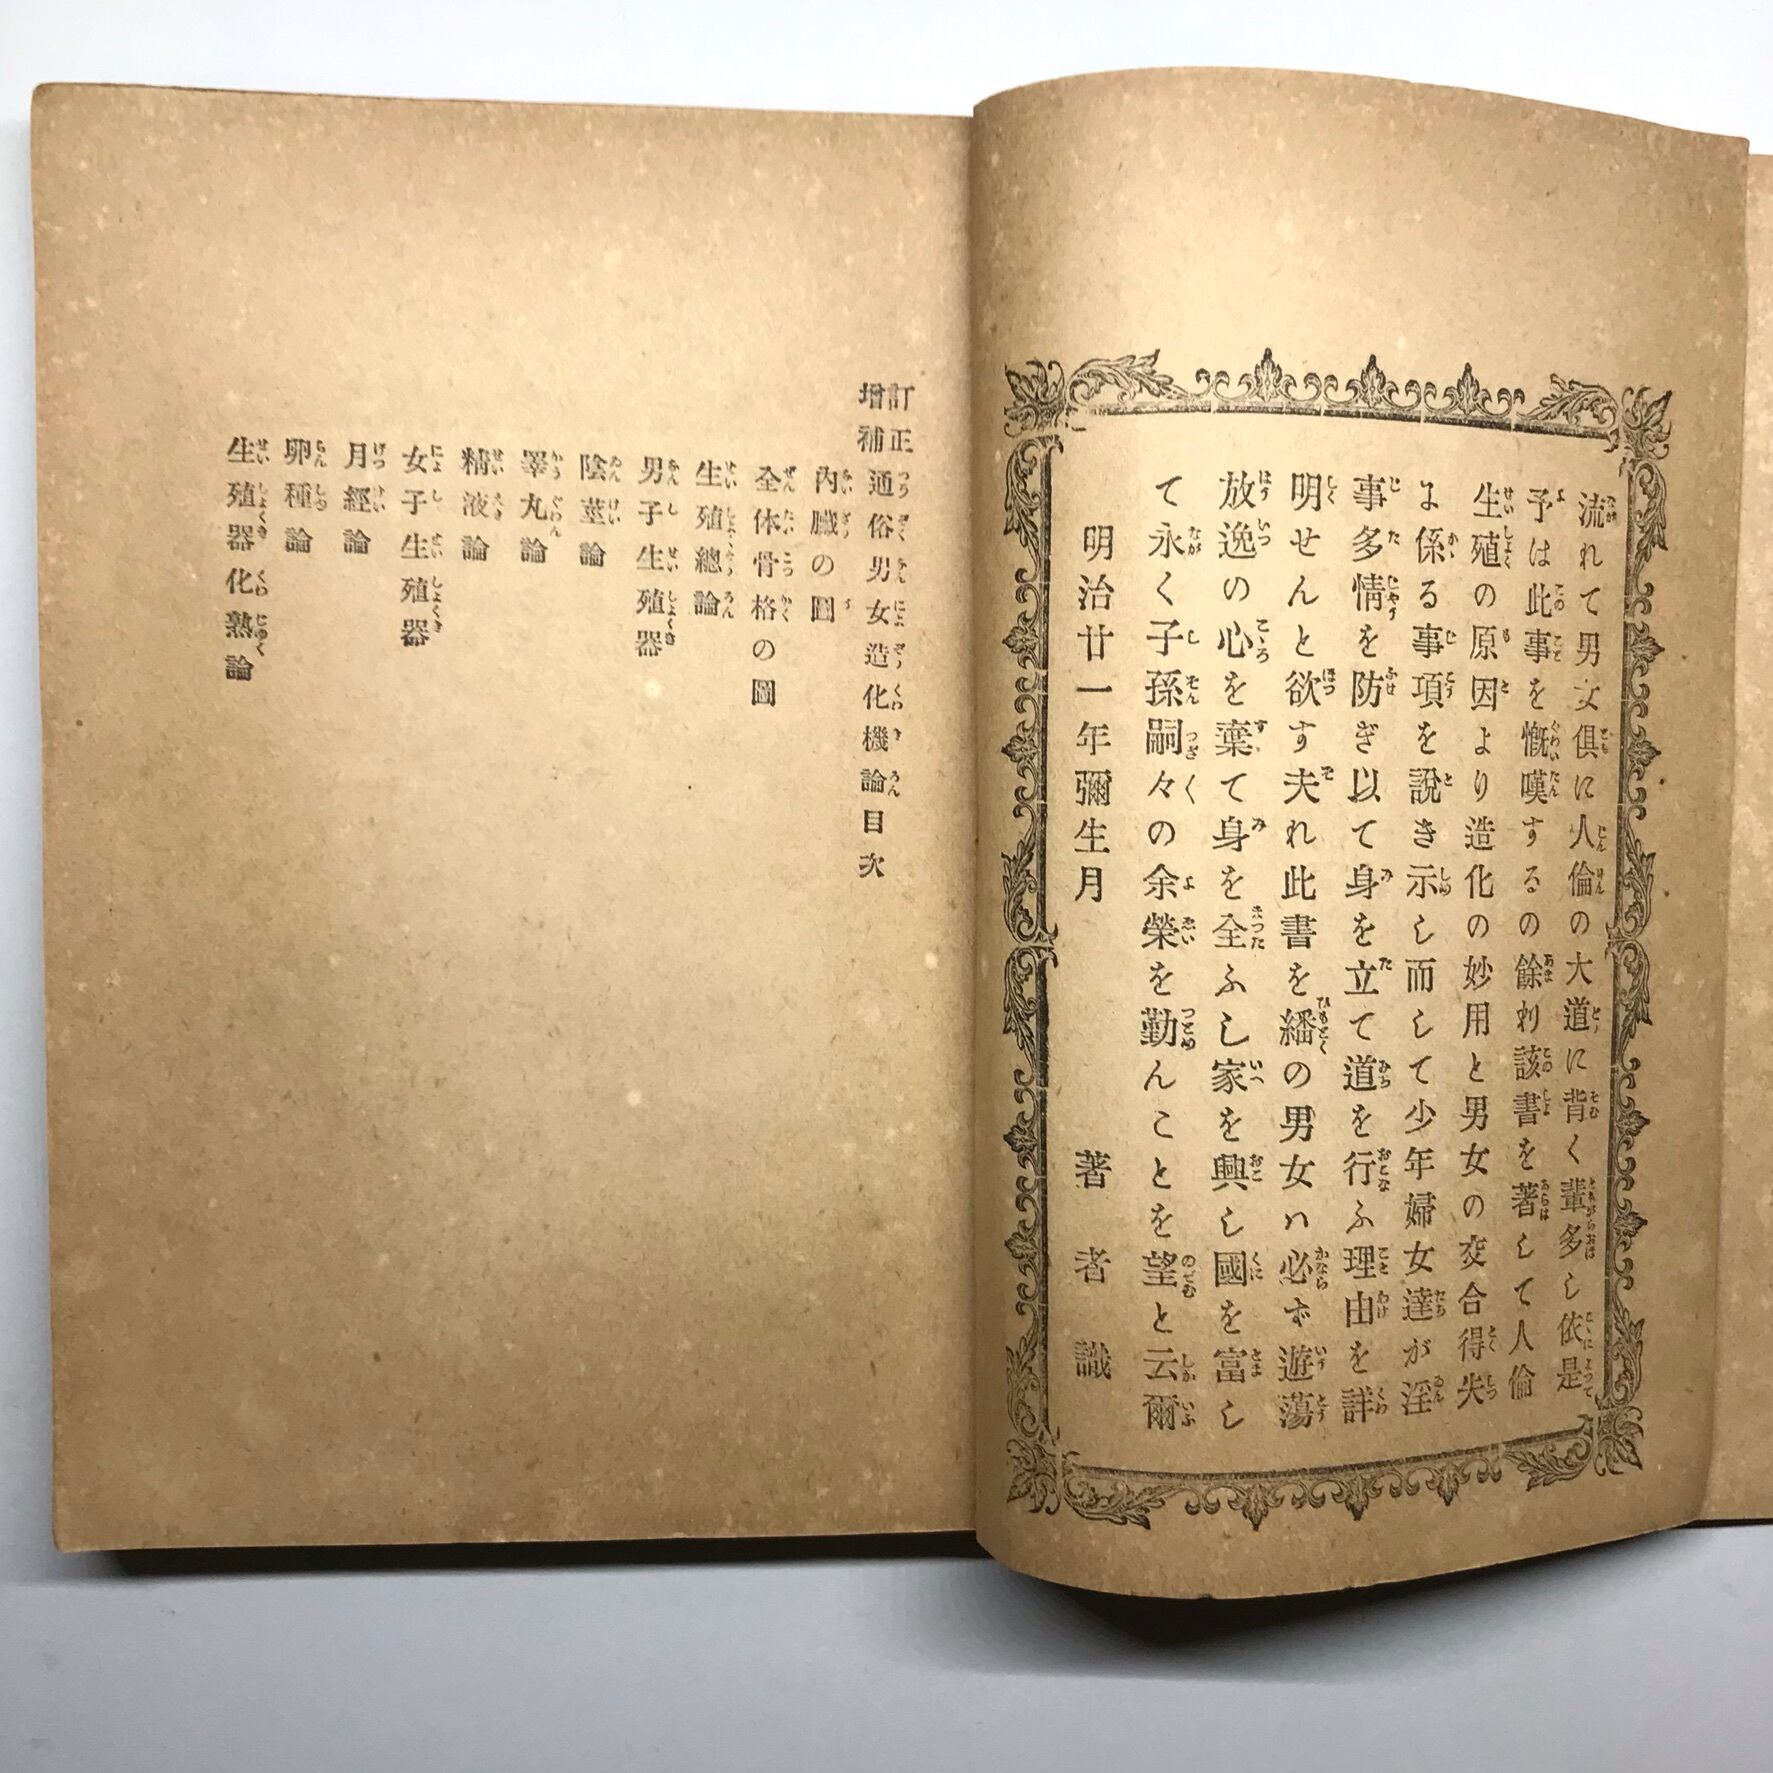 流れて男女倶に人倫の大道に背く輩多し依是
予は此事を慨嘆するの餘り該書を著して人倫
生殖の原因より造化の妙用と男女の交合得失
に係る事項を說き示し而して少年婦女達が淫
事多情を防ぎ以て身を立て道を行ふ理由を詳
明せんと欲す夫れ此書を繙の男女ハ必ず遊蕩
放逸の心を棄て身を全ふし家を興し國を富し
て永く子孫嗣々の余榮を勤んことを望と云爾
明治廿一年彌生月 著者識
訂正增補通俗男女造化機論目次
內臟の圖
全体骨格の圖
生殖總論
男子生殖器
陰莖論
睪丸論
精液論
女子生殖器
月經論
卵種論
生殖器化熟論